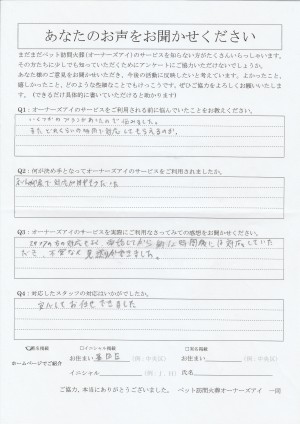 あなたのお声をお聞かせください
まだまだペット訪問火葬(オーナーズアイ)のサービスを知らない方がたくさんいらっしゃいます。
その方たちに少しでも知っていただくためにアンケートにご協力いただけないでしょうか。
あなた様のご意見をお聞かせいただき、今後の活動に反映したいと考えています。よかったこと、
嬉しかったこと、どのような些細なことでもけっこうです。ぜひご協力をよろしくお願いいたします。
(できるだけ具体的に書いていただけると助かります)
Q1:オーナーズアイのサービスをご利用される前に悩んでいたことをお教えください。
いくつかのプランがあったので悩みました。
また、どれくらいの時間で対応してもらえるのか。
Q2:何が決め手となってオーナーズアイのサービスをご利用されましたか。
Q3:オーナーズアイのサービスを実際にご利用なさってみての感想をお聞かせください。
スタッフの方の対応もよく、
Q4:対応したスタッフの対応はいかがでしたか。
安心してお任せできました
匿名掲載
イニシャル掲載
実名掲載
ホームページでご紹介
お住まい
(例:中央区)
お住まい
(例:中央区)
イニシャル
氏名
ご協力、本当にありがとうございました。 ペット訪問火葬オーナーズアイ 一同